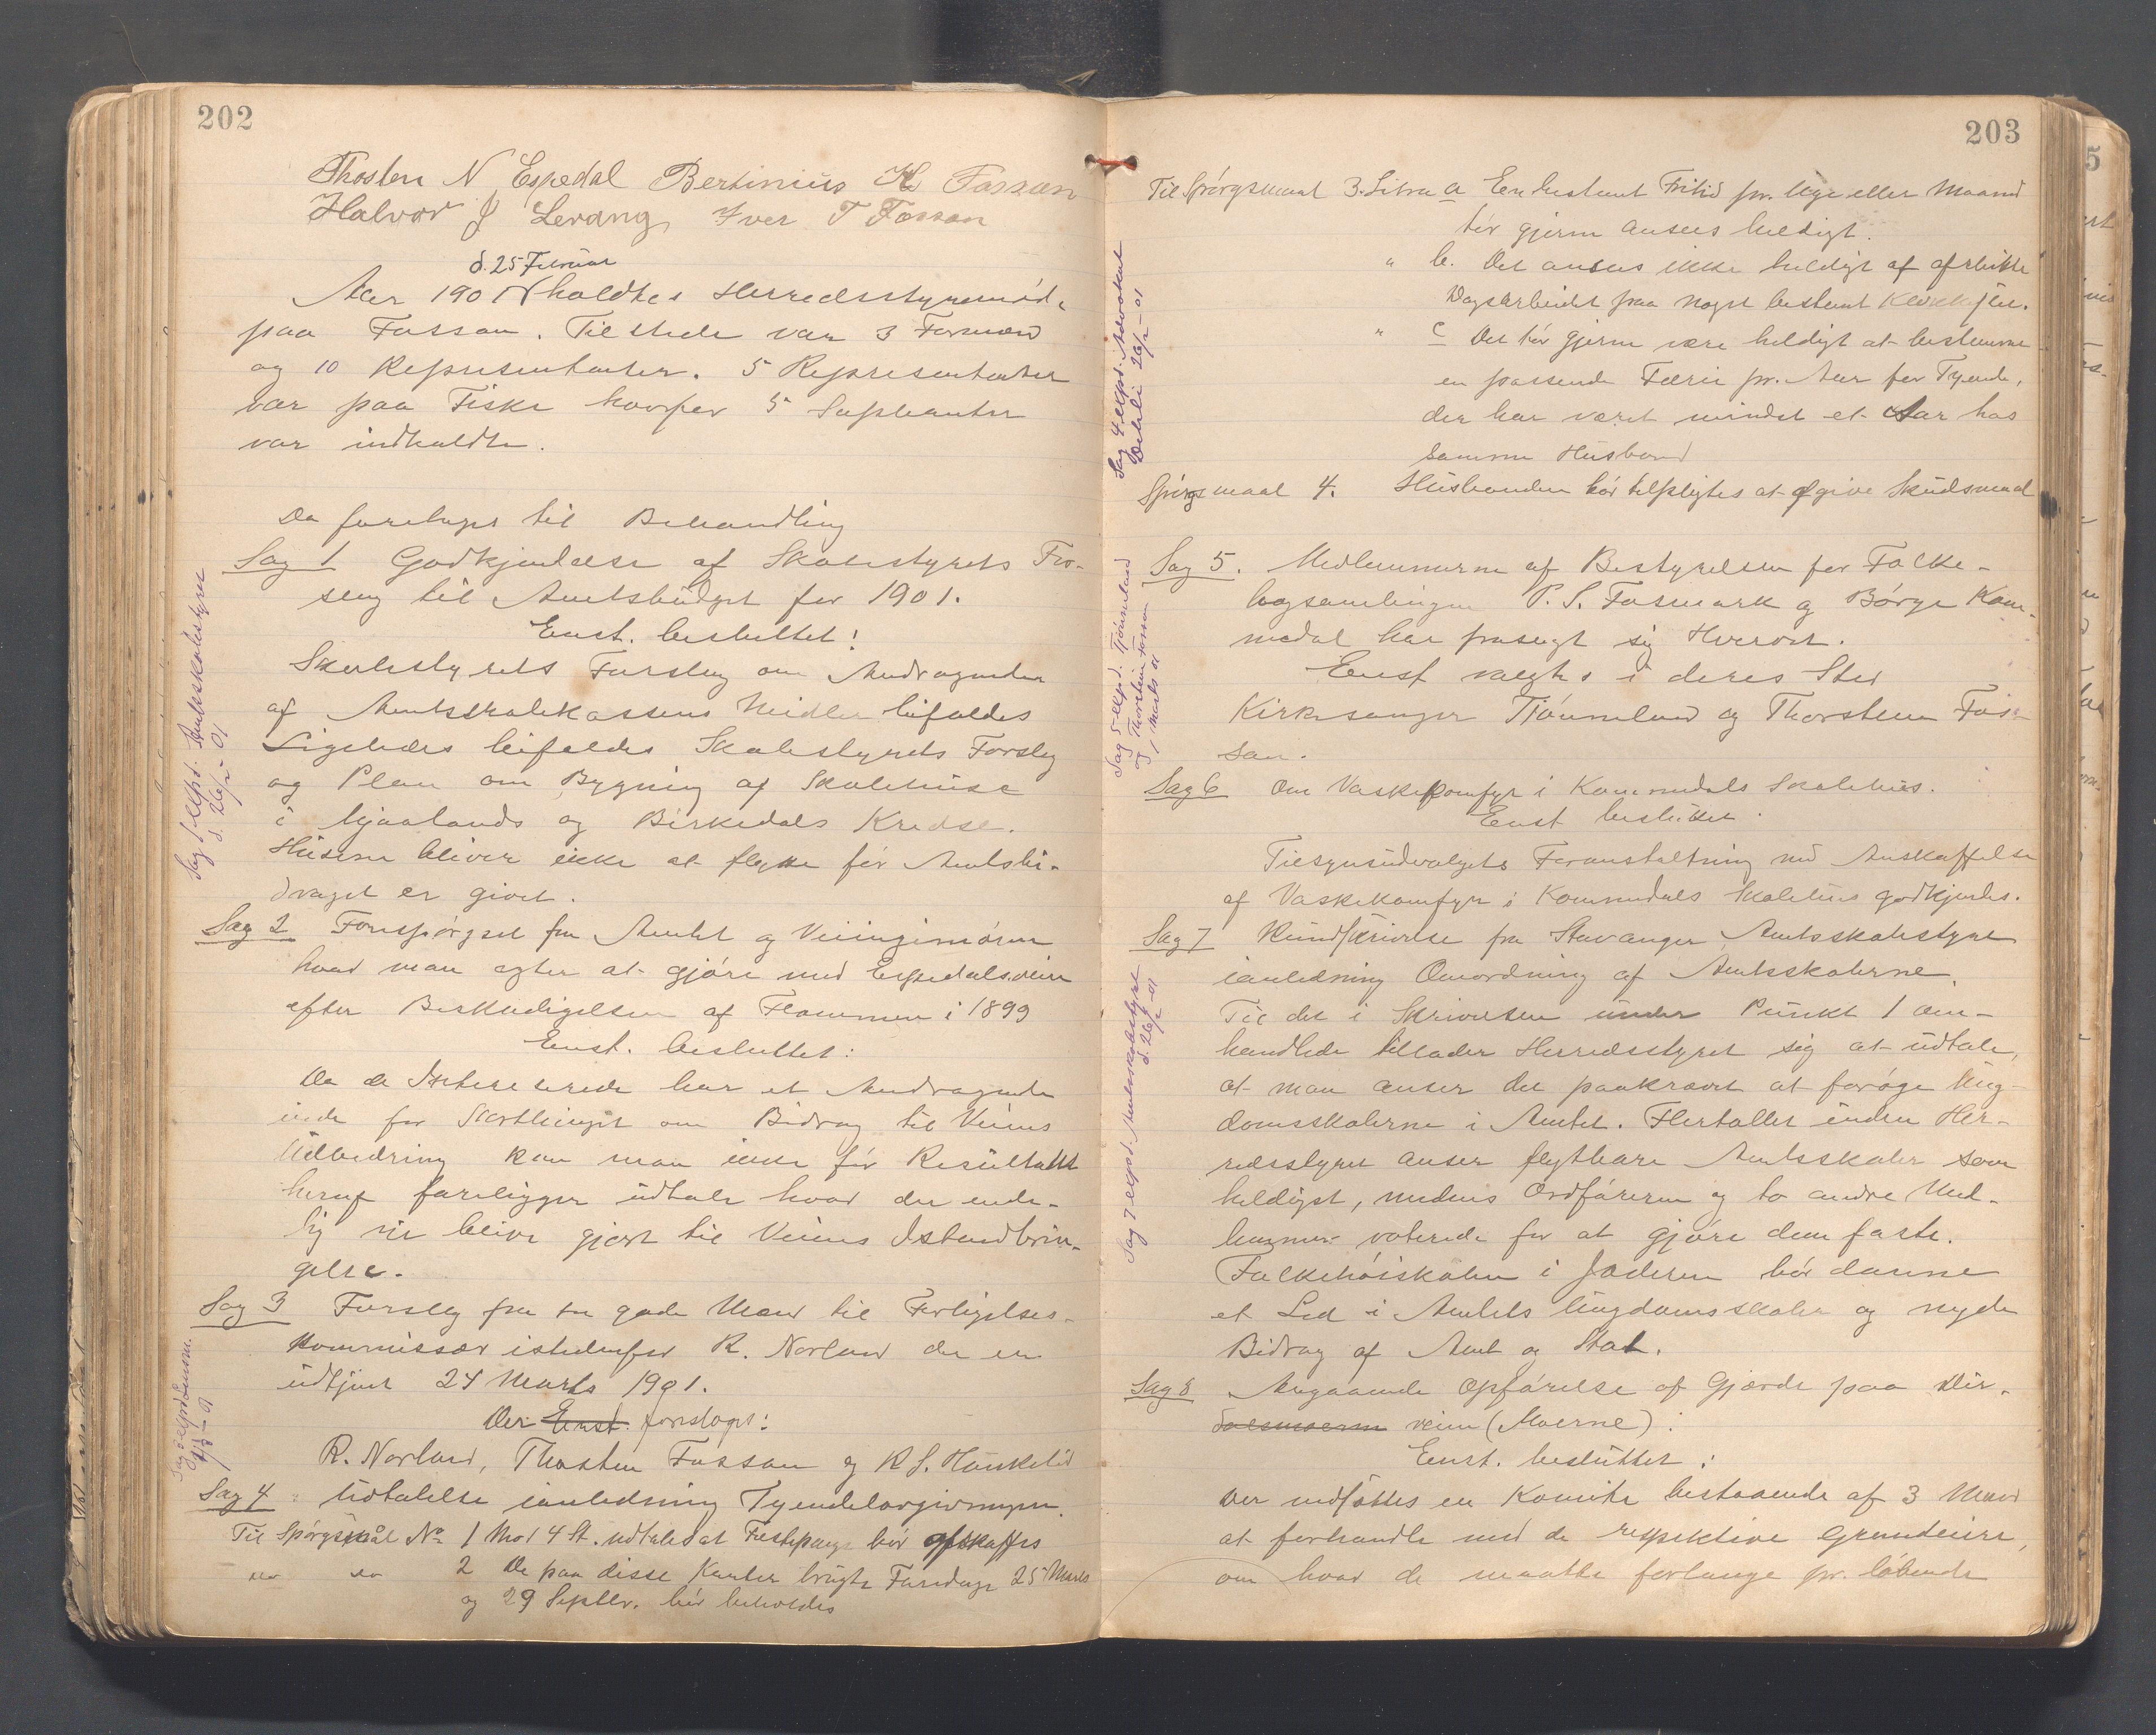 202
Thosten N Espedal Bertinius K Fossan
Halvor J Levang Iver T Fossan
d. 25 Februar
Aar 1901 holdtes Herredsstyremøde
paa Fossan. Tilstede var 3 Formænd
og 10 Repræsentanter. 5 Repræsentanter
var paa Fiske hvorfor 5 Supleanter
var indkaldte.
Da foretoges til Behandling
Sag 1 Godkjendelse af Skolestyrets For-
slag til Amtsbudget for 1901.
Enst. besluttet:
Skolestyrets Forslag om Andragender
af Amtsskolekassens Midler bifaldes
Ligeledes bifaldes Skolestyrets Forslag
og Plan om Bygning af Skolehuse
i Mjaalands og Birkedals Kredse.
Husene bliver ikke at flytte før Amtsbi-
draget er givet.
Sag 2 Forespørgsel fra Amtet og Veiingeniøren
hvad man agter at gjøre med Espedalsveien
efter Beskadigelsen af Flommen i 1899
Enst. besluttet:
Da de Interesserede har et Andragende
inde for Storthinget om Bidrag til Veiens
Udbedring kan man ikke før Resultatet
heraf foreligger udtale hvad der ende-
lig vil blive gjort til Veiens Istandbrin-
gelse.
Sag 3 Forslag fra tre gode Mænd til Forligelses-
kommissær istedenfor R. Norland der er
udtjent 24 Marts 1901.
Der Enst. foreslages:
R. Norland, Thosten Fossan og R S. Haukelid
Sag 4 Udtalelse ianledning Tyendelovgivningen.
Til Spørgsmål No 1 Mod 4 St. udtales at Festepenge bør afskaffes
do do 2 De paa disse Kanter brugte Faredage 25 Marts
og 29 Septbr. bør beholdes
Sag 1 expd. Amtsskolestyre
d. 26/2 01
203
Til Spørgsmaal 3. Litra a En bestemt Fritid pr. Uge eller Maaned
tør gjerne ansees heldigt.
" b. Det ansees ikke heldigt at afslutte
Dagsarbeidet paa noget bestemt Klokkeslæt.
" c Det tør gjerne være heldigt at bestemme
en passende Ferie pr. Aar for Tyende,
der har været mindst et Aar hos
samme Husbond
Spørgsmaal 4. Husbonden bør tilpligtes at afgive Skudsmaal
Sag 5. Medlemmerne af Bestyrelsen for Folke-
bogsamlingen P. S. Fosmark og Børge Kom-
medal har frasagt sig Hvervet.
Enst valgtes i deres Sted
Kirkesanger Tjømeland og Thorsten Fos-
san.
Sag 6 Om Vaskekomfyr i Kommedals Skolehus.
Enst besluttet.
Tilsynsudvalgets Foranstaltning med Anskaffelse
af Vaskekomfyr i Kommedals Skolehus godkjendes.
Sag 7 Rundskrivelse fra Stavanger Amtsskolestyre
ianledning Omordning af Amtsskolerne.
Til det i Skrivelsen under Punkt 1 om-
handlede tillader Herredsstyret sig at udtale,
at man anser det paakrævet at forøge Ung-
domsskolerne i Amtet. Flertallet inden Her-
redsstyret anser flytbare Amtsskoler som
heldigst, medens Ordføreren og to andre Med-
lemmer voterede for at gjøre dem faste.
Folkehøiskolen i Jæderen bør danne
et Led i Amtets Ungdomsskoler og nyde
Bidrag af Amt og Stat.
Sag 8 Angaaende Opførelse af Gjærde paa Dir-
dalsmoerne veien (Moerne):
Enst. besluttet:
Der nedsættes en Komite bestaaende af 3 Mænd
at forhandle med de respektive Grundeiere,
om hvad de maatte forlange pr. løbende
Sag 4 expd. Advokat
26/2-01
Sag 5 expd. Tjømeland
og Thorstein Fossan
1 Marts 01
Sag 7 expd. Amtsskolestyre
d. 26/2-01